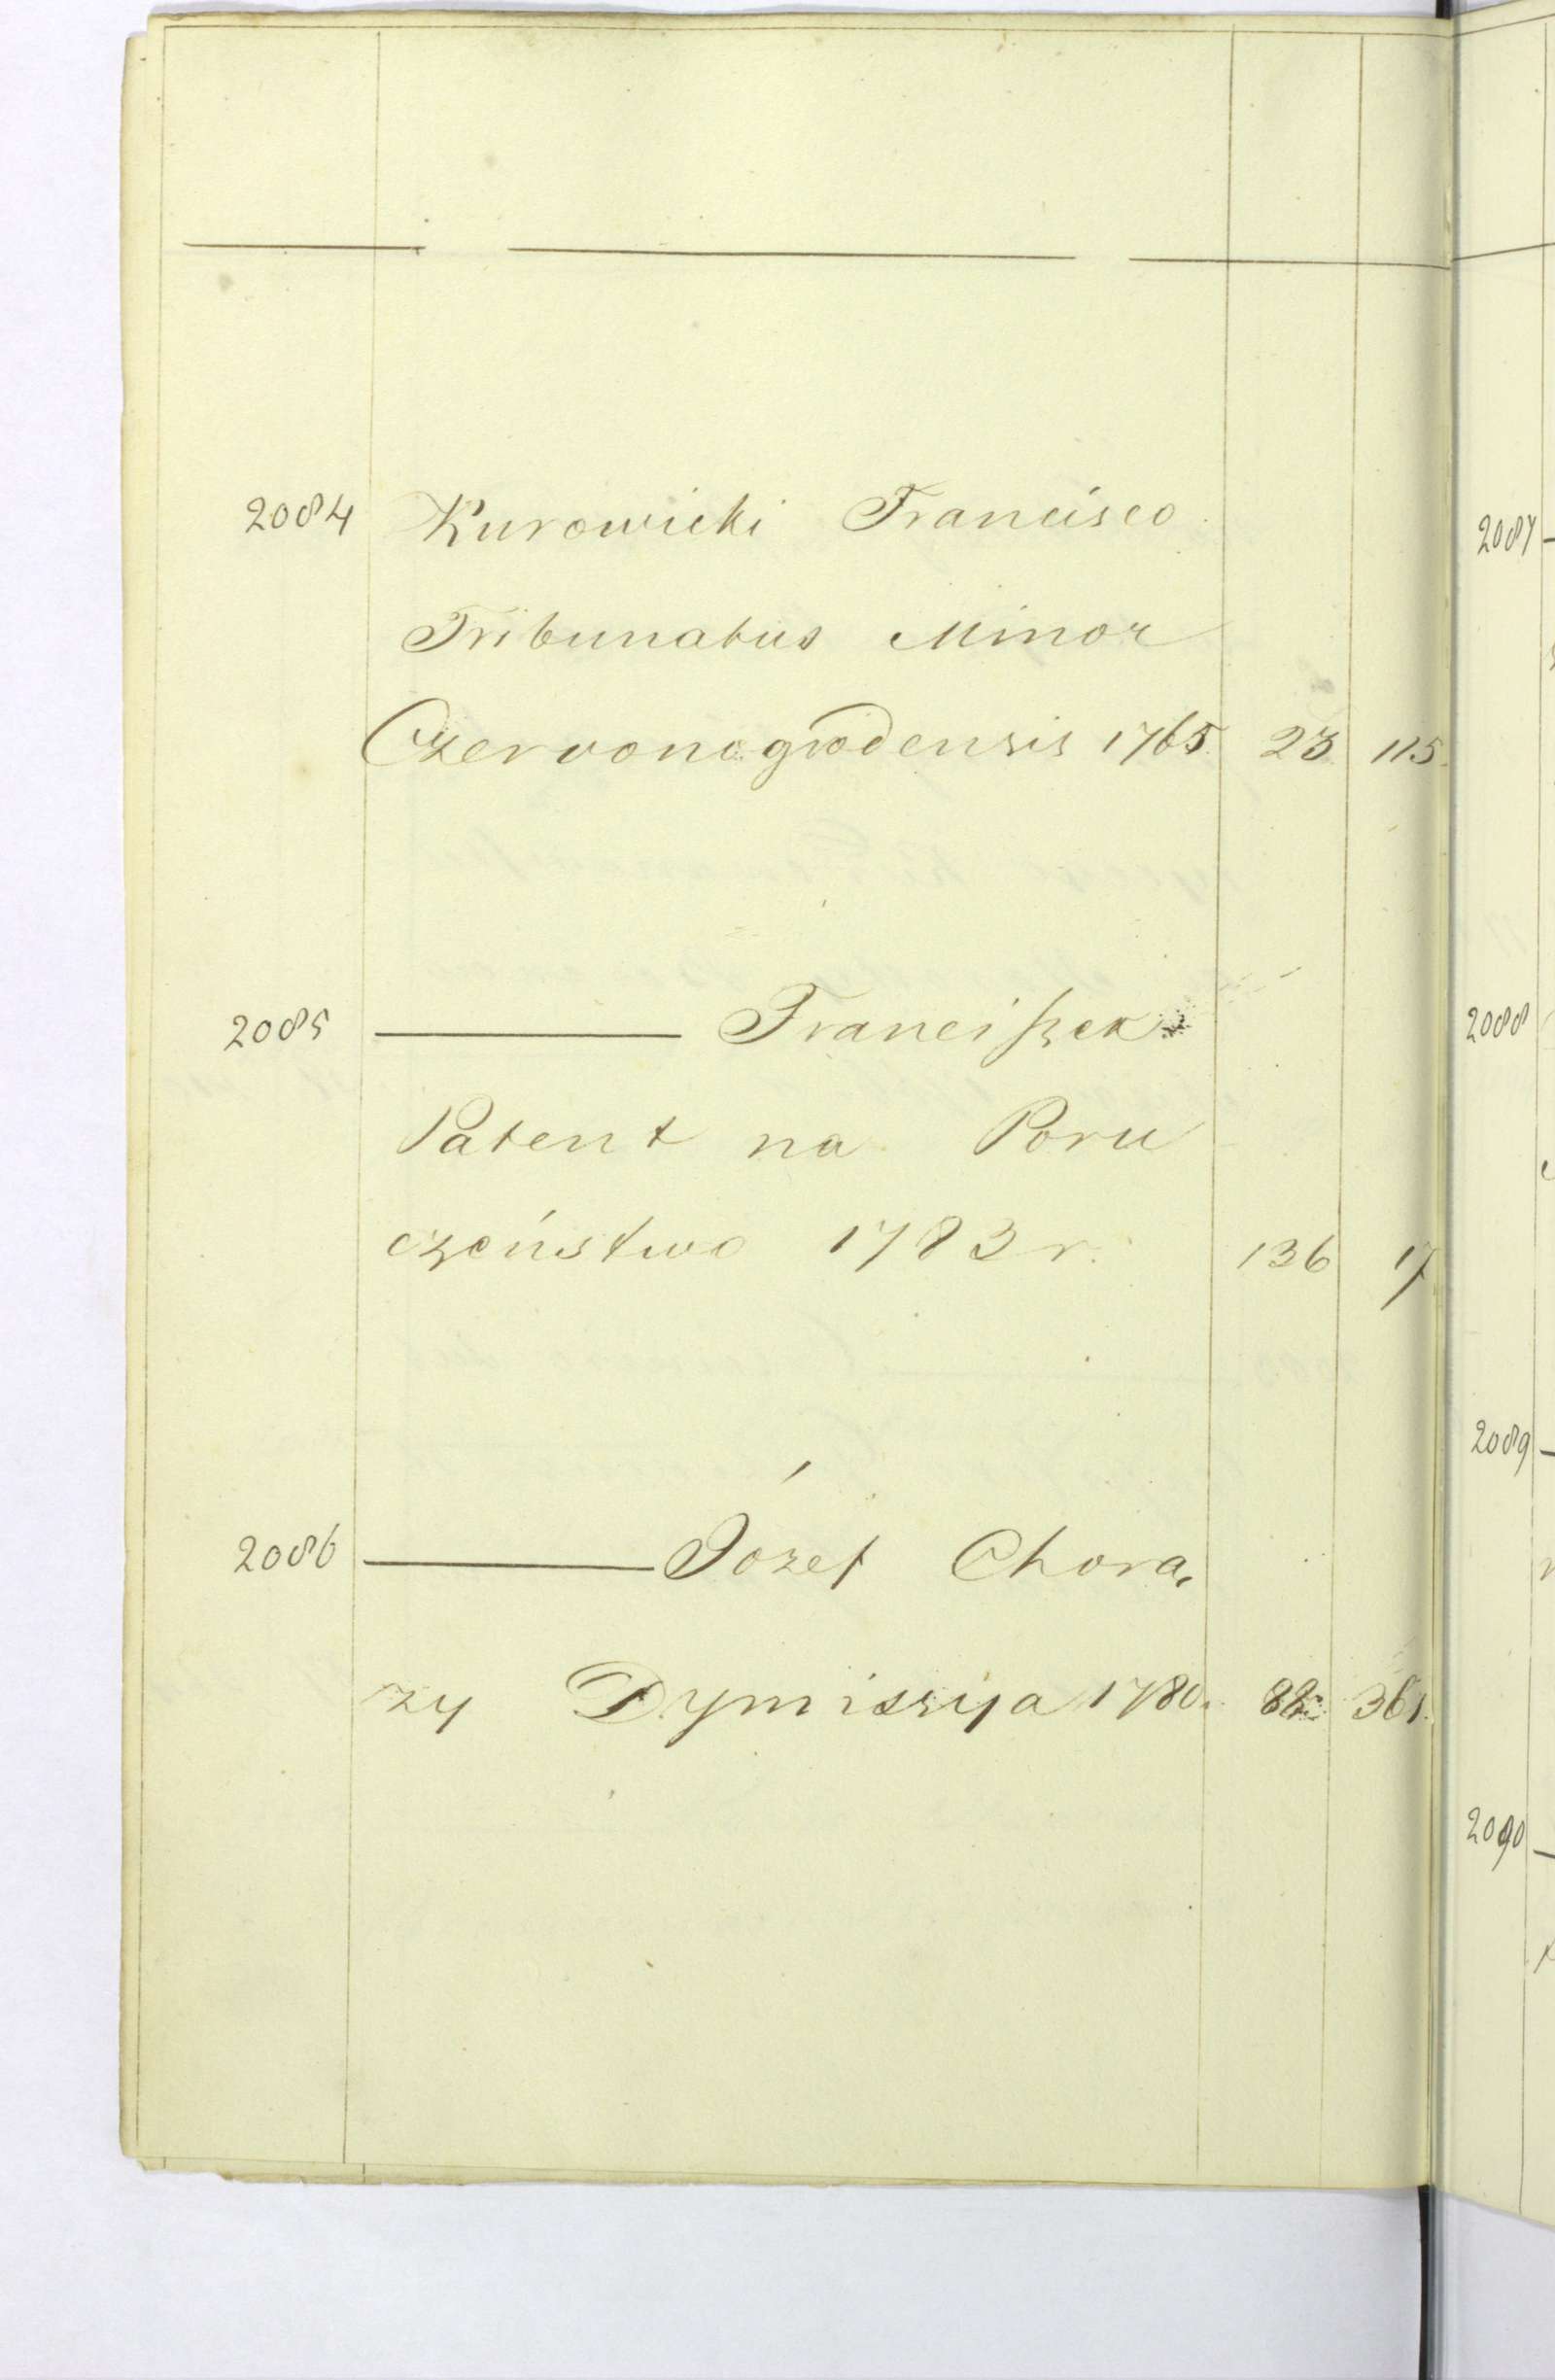 2084 Kurowicki Francisco
Tribunatus Minor
Czervonogrodensis 1765. 23 115.
2085 ——— Franciszek
Patent na Poru
czeństwo 1783 r. 136 17
2086 ——— Józef Chorą
zy Dymissya 1780. 361.
2087
2088
2089
2090